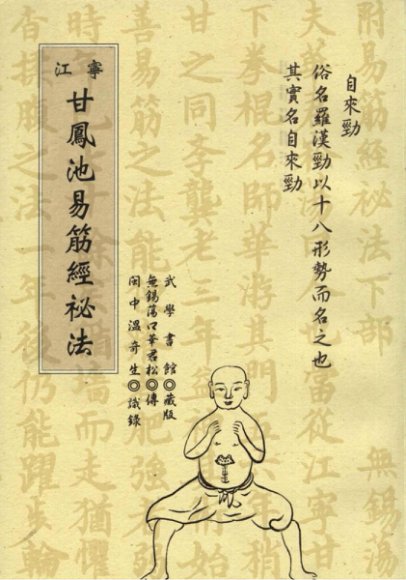 自來勁
俗名羅漢勁以十八形勢而名之也
其實名自來勁
武學書館◎藏版
無錫蕩口華君松◎傳
閩中溫奇生◎識錄
江寧
甘鳳池易筋經祕法
附易筋經祕法下部 無錫蕩
夫 當從江寧甘
下拳棍名師華游其門 年稍
甘之同李龔老三年 始
善易筋之法能 肥強
時 牆而走猶懼
香 之法一年後仍能躍步輪